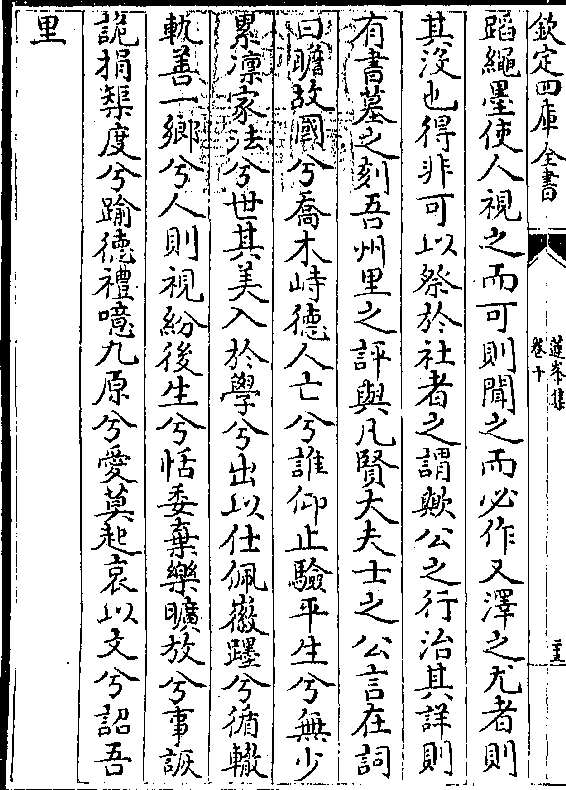 欽定四庫全書
蓮峯集
卷十
蹈繩墨使人視之而可則聞之而必作又澤之尤者則
其沒也得非可以祭於社者之謂歟公之行治其詳則
有書墓之刻吾州里之評與凡賢大夫士之公言在詞
曰瞻故國兮喬木峙德人亡兮誰仰止驗平生兮無少
累凜家法兮世其美入於學兮出以仕佩徽躔兮循轍
軌善一鄉兮人則視紛後生兮恬委棄樂曠放兮事詼
詭捐榘度兮踰德禮噫九原兮愛莫起哀以文兮詔吾
里